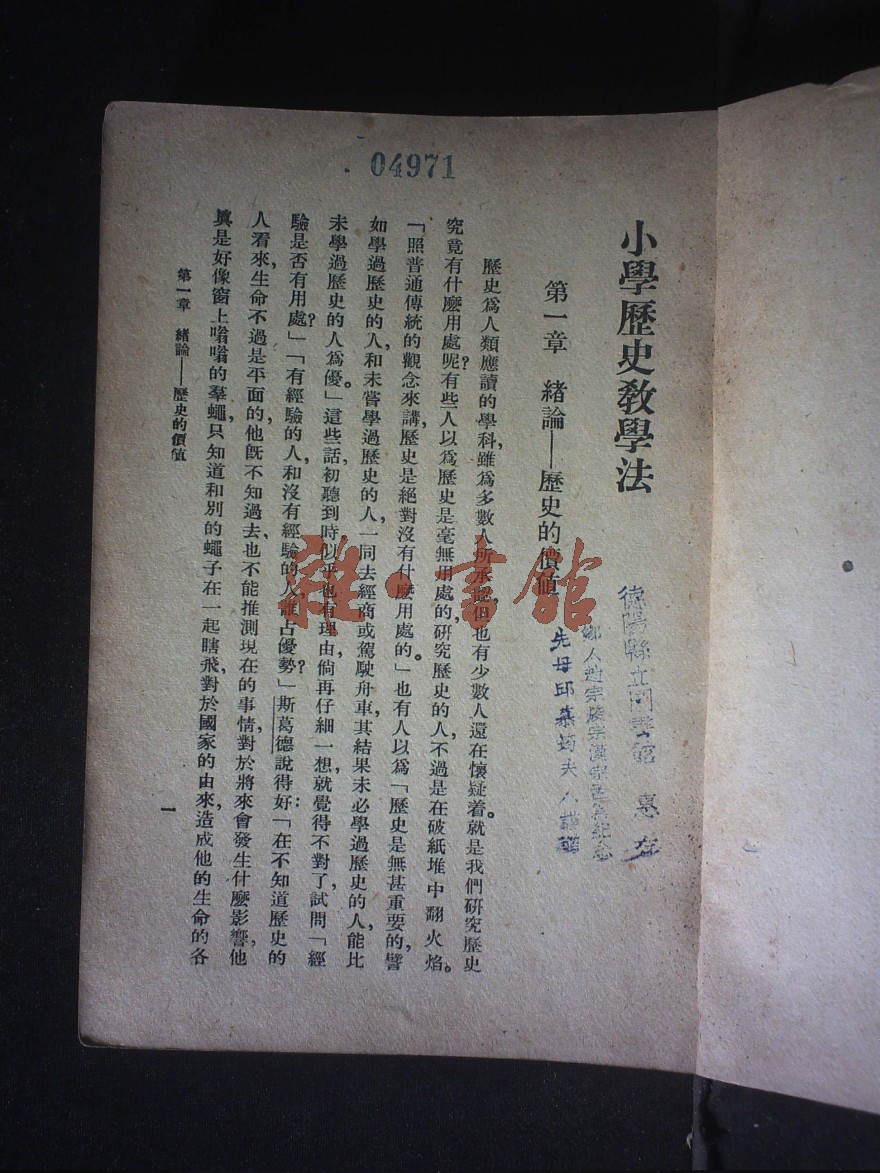 04971
小學歷史教學法
第一章 緒論——歷史的價值
德陽縣立圖書館 惠存
鄉人趙宗 宗漢宗 爲紀念
先母邱慕筠夫人 贈
歷史爲人類應讀的學科，雖爲多數人所承認，但也有少數人還在懷疑着。就是我們研究歷史
究竟有什麽用處呢？有些人以爲歷史是毫無用處的，研究歷史的人，不過是在破紙堆中翻火焰。
「照普通傳統的觀念來講，歷史是絕對沒有什麽用處的。」也有人以爲「歷史是無甚重要的，譬
如學過歷史的人，和未嘗學過歷史的人，一同去經商或駕駛舟車，其結果未必學過歷史的人，能比
未學過歷史的人爲優。」這些話，初聽到時，似乎也有理由，倘再仔細一想，就覺得不對了，試問「經
驗是否有用處？」「有經驗的人，和沒有經驗的人，誰占優勢？」斯葛德說得好：「在不知道歷史的
人看來，生命不過是平面的，他旣不知過去，也不能推測現在的事情，對於將來會發生什麽影響，他
眞是好像窗上嗡嗡的羣蠅，只知道和別的蠅子在一起瞎飛，對於國家的由來，造成他的生命的各
第一章 緒論——歷史的價值
一
雜·書館